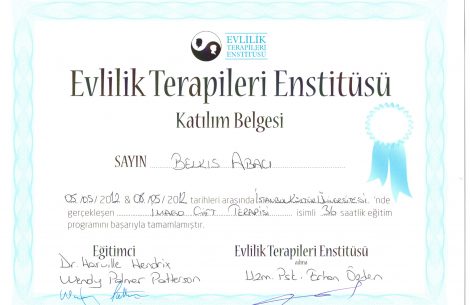 EVLİLİK
TERAPİLERİ
ENSTİTÜSÜ
Evlilik Terapileri Enstitüsü
Katılım Belgesi
SAYIN Belkıs Abacı
05/05/2012 & 08/05/2012 tarihleri arasında İstanbul Kültür Üniversitesi 'nde
gerçekleşen Imago Çift Terapisi isimli 36 saatlik eğitim
programını başarıyla tamamlamıştır.
Eğitimci
Evlilik Terapileri Enstitüsü
adına
Dr. Harville Hendrix
Wendy Palmer Patterson
Uzm. Psk. Erhan Özden